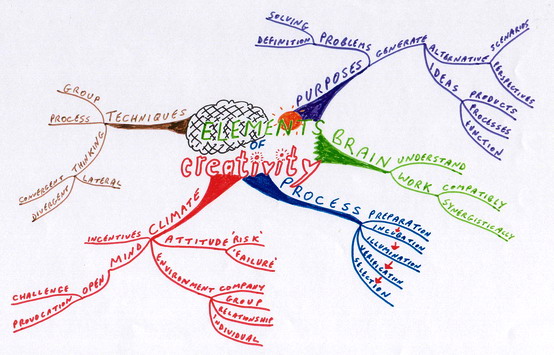 ELEMENTS
OF
creativity
PURPOSES
PROBLEMS
SOLVING
DEFINITION
GENERATE
ALTERNATIVE
SCENARIOS
PERSPECTIVES
IDEAS
PRODUCTS
PROCESSES
FUNCTION
BRAIN
UNDERSTAND
WORK
COMPATIBLY
SYNERGISTICALLY
PROCESS
PREPARATION
INCUBATION
ILLUMINATION
VERIFICATION
SELECTION
CLIMATE
INCENTIVES
ATTITUDE
'RISK'
'FAILURE'
ENVIRONMENT
COMPANY
GROUP
RELATIONSHIP
INDIVIDUAL
OPEN MIND
CHALLENGE
PROVOCATION
TECHNIQUES
GROUP
PROCESS
THINKING
LATERAL
CONVERGENT
DIVERGENT